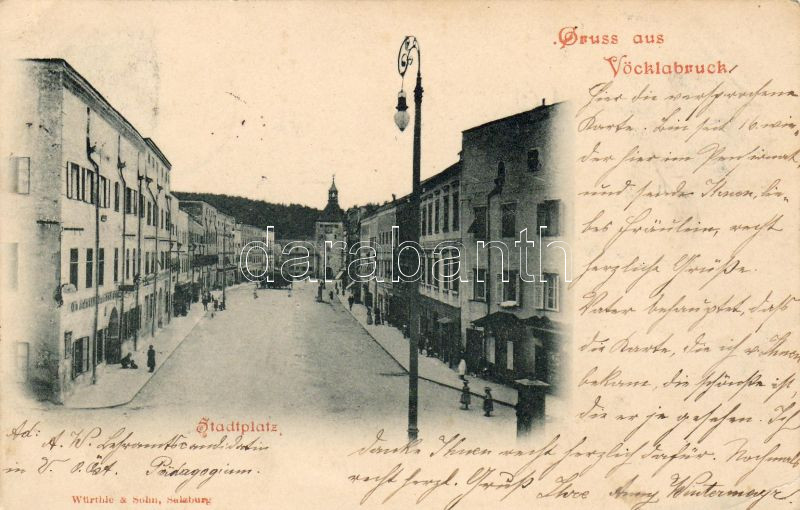 Gruss aus
Vöcklabruck.
Hier die versprochene
Karte. Bin seit 16. wie-
der hier im Pensionat
und sende Ihnen, lie-
bes Fräulein, recht
herzliche Grüße.
Vater behauptet, dass
die Karte, die ich v. Ihnen
bekam, die schönste ist,
die er je gesehen. Ich
danke Ihnen recht herzlich dafür. Nochmals
recht herzl. Gruß Ihre Anny Wintermayr.
Stadtplatz.
Ad: A. W. Lehramtscandidatin
in V. O.Öst. Pädagogium.
Würthle & Sohn, Salzburg
darabanth